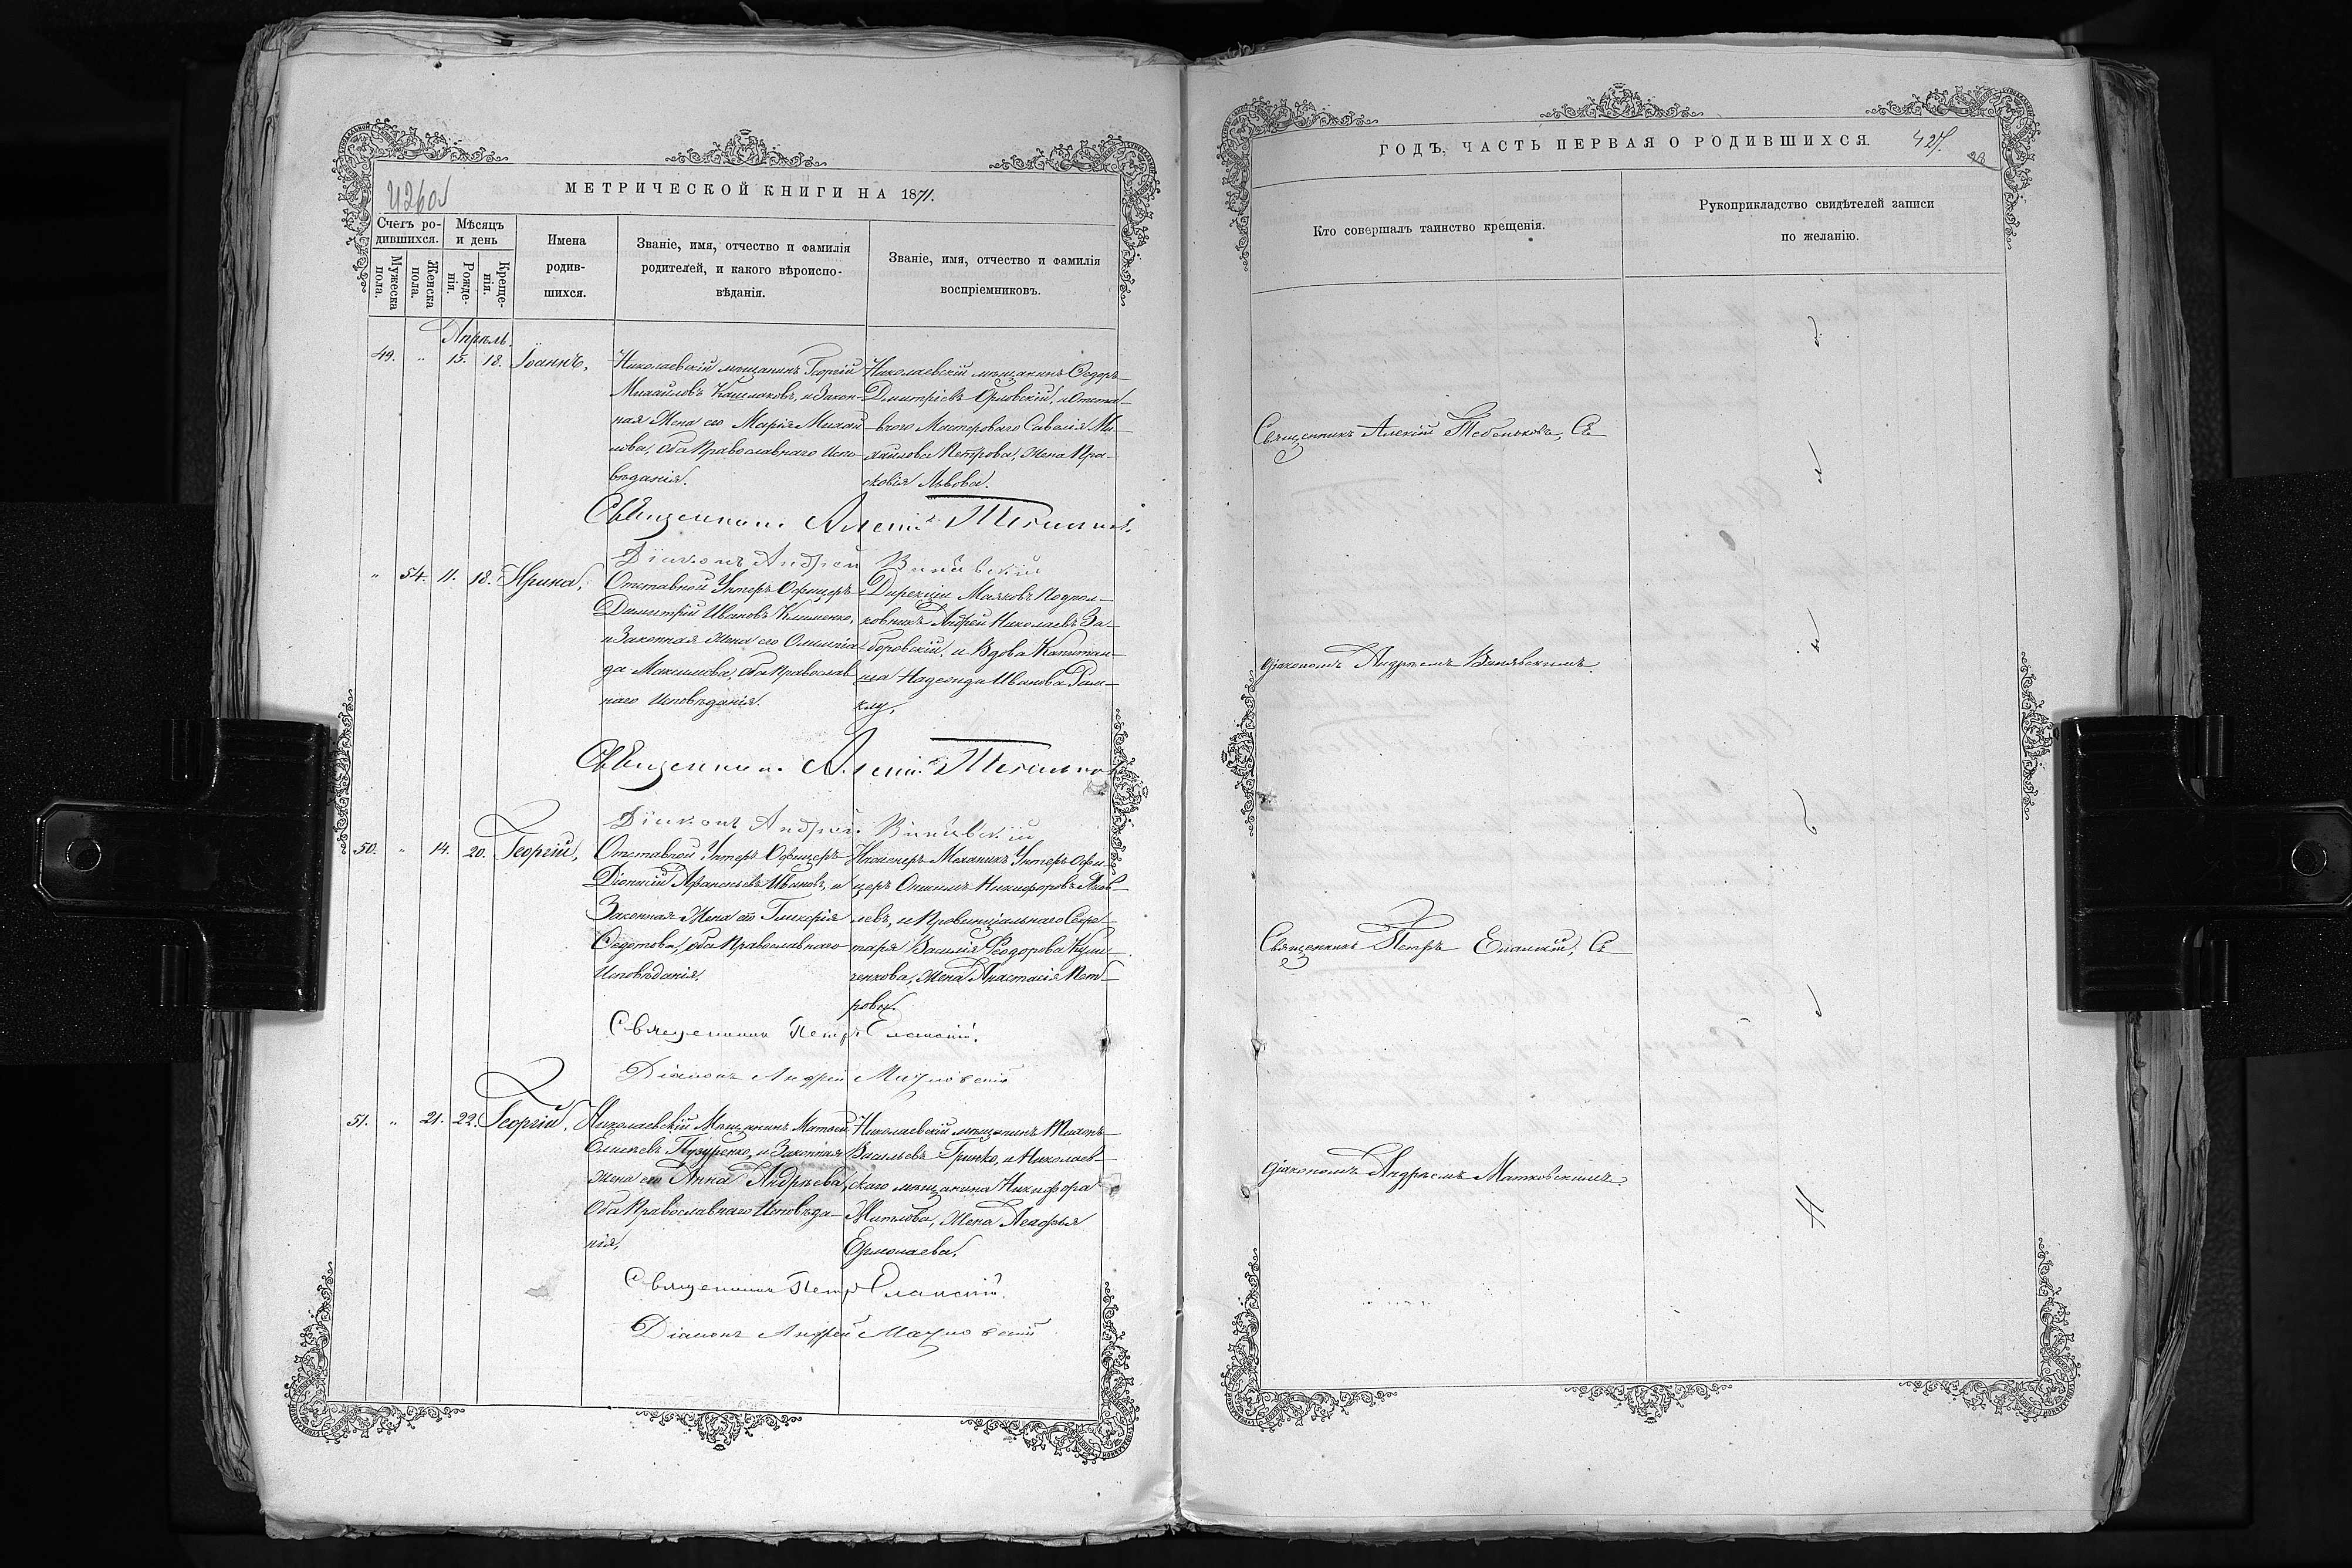 426об
МЕТРИЧЕСКОЙ КНИГИ НА 1871.
Счетъ ро-
дившихся.
Мужеска
пола.
Женска
пола.
Мѣсяцъ
и день
Рожде-
нія.
Креще-
нія.
Имена
родив-
шихся.
Званіе, имя, отчество и фамилія
родителей, и какого вѣроиспо-
вѣданія.
Званіе, имя, отчество и фамилія
воспріемниковъ.
Апрѣль.
49. " 15. 18. Іоаннъ,
Николаевскій мѣщанинъ Георгій
Михайловъ Кашлаковъ, и Закон-
ная Жена его Марія Михаи
лова, оба Православнаго Испо-
вѣданія.
Николаевскій мѣщанинъ Ѳедоръ
Дмитріевъ Орловскій, и Отста-
внаго Мастероваго Савелія Ми-
хайлова Петрова, жена Пра-
сковія Львова.
Священникъ Алексій
Діаконъ Андрей Винявскій
" 54. 11. 18. Ирина,
Отставной Унтеръ Офицеръ
Димитрій Ивановъ Клименко,
и Законная Жена его Олимпіа
да Максимова, оба Православ
наго Исповѣданія.
Дирекціи Маяковъ Подпол-
ковникъ Андрей Николаевъ За-
боровскій, и Вдова Капитан-
ша Надежда Иванова
Священникъ Алексій
Діаконъ Андрей Винявскій
50. " 14. 20. Георгій,
Отставной Унтеръ Офицеръ
Діонисій Афанасьевъ Ивановъ, и
Законная Жена его Гликерія
Ѳедотова, оба Православнаго
Исповѣданія.
Инженеръ Механикъ Унтеръ Офи-
церъ Онисимъ Никифоровъ Яков-
левъ, и Провинціальнаго Секре-
таря Василія Ѳеодорова
жена Анастасія Пет-
рова.
Священникъ Петръ Еланскій.
Діаконъ Андрей Матковскій
51. " 21. 22. Георгій,
Николаевскій Мѣщанинъ Матвѣй
Елисѣевъ Пузуренко, и Законная
жена его Анна Андрѣева,
Оба Православнаго Исповѣда-
нія.
Николаевскій мѣщанинъ Тихонъ
Васильевъ Гринко, и Николаев-
скаго мѣщанина Никифора
Жена
Ермолаева.
Священникъ Петръ Еланскій.
Діаконъ Андрей Матковскій
ГОДЪ, ЧАСТЬ ПЕРВАЯ О РОДИВШИХСЯ.
427.
Кто совершалъ таинство крещенія.
Рукоприкладство свидѣтелей записи
по желанію.
Священникъ Алексій Тебеньковъ, Съ
діакономъ Андрѣемъ Винявскимъ
Священникъ Петръ Еланскій, Съ
діакономъ Андрѣемъ Матковскимъ.